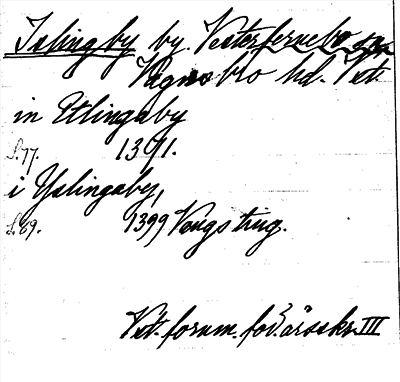 Islingby by Vesterfernebo sn
Vagnsbro hd. Vstl.
in Utlingaby
S.77. 1371.
i Yslingaby,
S.89. 1399 Vaugs ting.
Vstl. fornm. för. årsskr. III